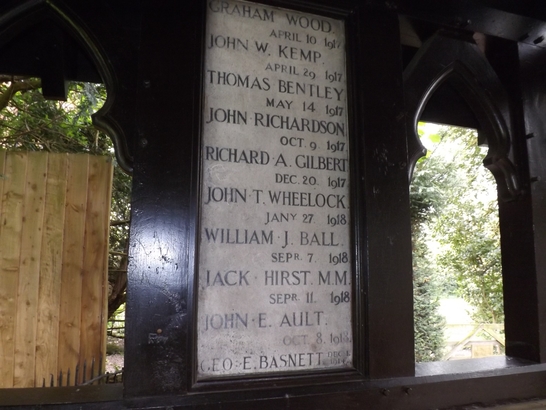 GRAHAM WOOD.
APRIL 16 1917
JOHN W. KEMP.
APRIL 29 1917
THOMAS BENTLEY
MAY 14 1917
JOHN RICHARDSON
OCT. 9 1917
RICHARD A. GILBERT
DEC. 20. 1917
JOHN T. WHEELOCK
JANY 27. 1918
WILLIAM J. BALL.
SEPR. 7. 1918
JACK HIRST. M.M.
SEPR 11. 1918
JOHN E. AULT.
OCT 8. 1918
GEO E. BASNETT.